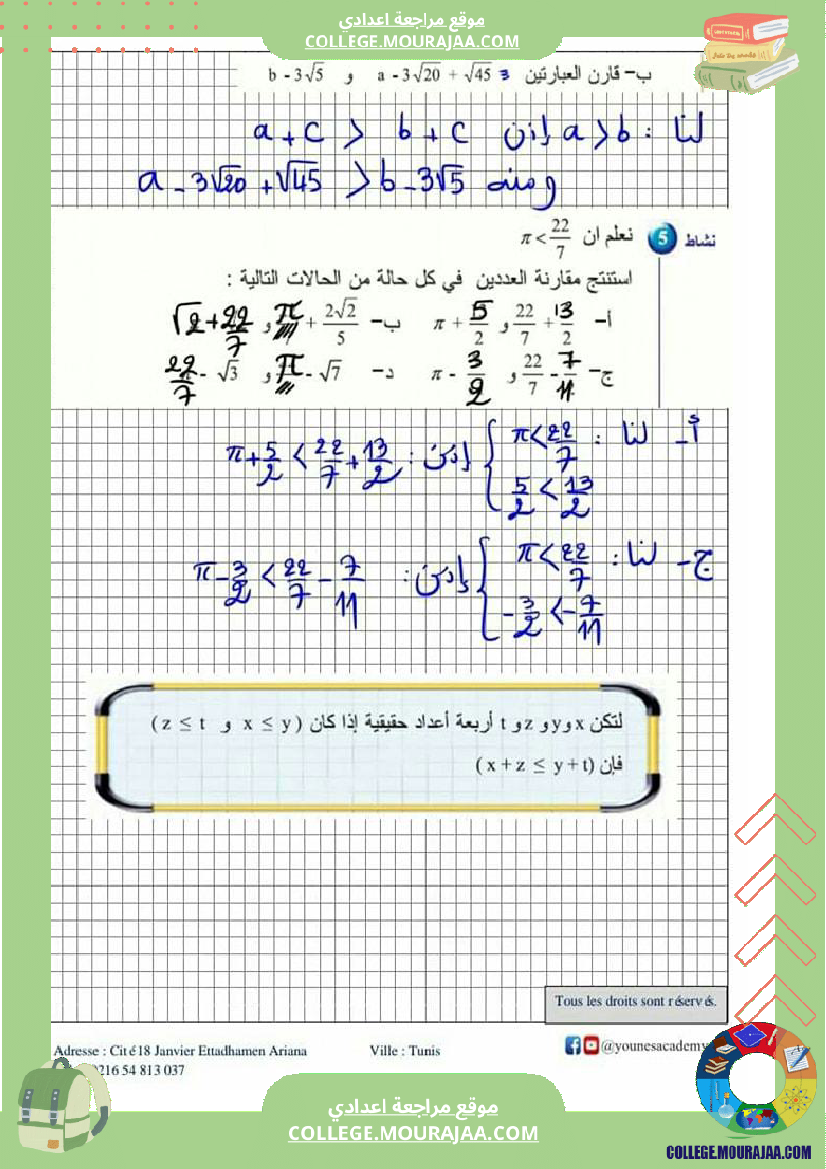 موقع مراجعة اعدادي
COLLEGE.MOURAJAA.COM
ب- قارن العبارتين a - 3√20 + √45 و b - 3√5
لنا : a > b إذن a + c > b + c
ومنه a - 3√20 + √45 > b - 3√5
نشاط 5 نعلم ان π < 22/7
استنتج مقارنة العددين في كل حالة من الحالات التالية :
أ- 22/7 + 13/2 و π + 5/2 ب- π + 2√2/5 و √2 + 22/7
ج- 22/7 - 7/11 و π - 3/2 د- π - √7 و 22/7 - √3
أ- لنا : { π < 22/7 ; 5/2 < 13/2 إذن : π + 5/2 < 22/7 + 13/2
ج- لنا : { π < 22/7 ; -3/2 < -7/11 إذن : π - 3/2 < 22/7 - 7/11
لتكن x و y و z و t أربعة أعداد حقيقية إذا كان ( x ≤ y و z ≤ t )
فإن ( x + z ≤ y + t )
Tous les droits sont réservés.
Adresse : Cité 18 Janvier Ettadhamen Ariana Ville : Tunis @younesacademy
0216 54 813 037
موقع مراجعة اعدادي
COLLEGE.MOURAJAA.COM
COLLEGE.MOURAJAA.COM